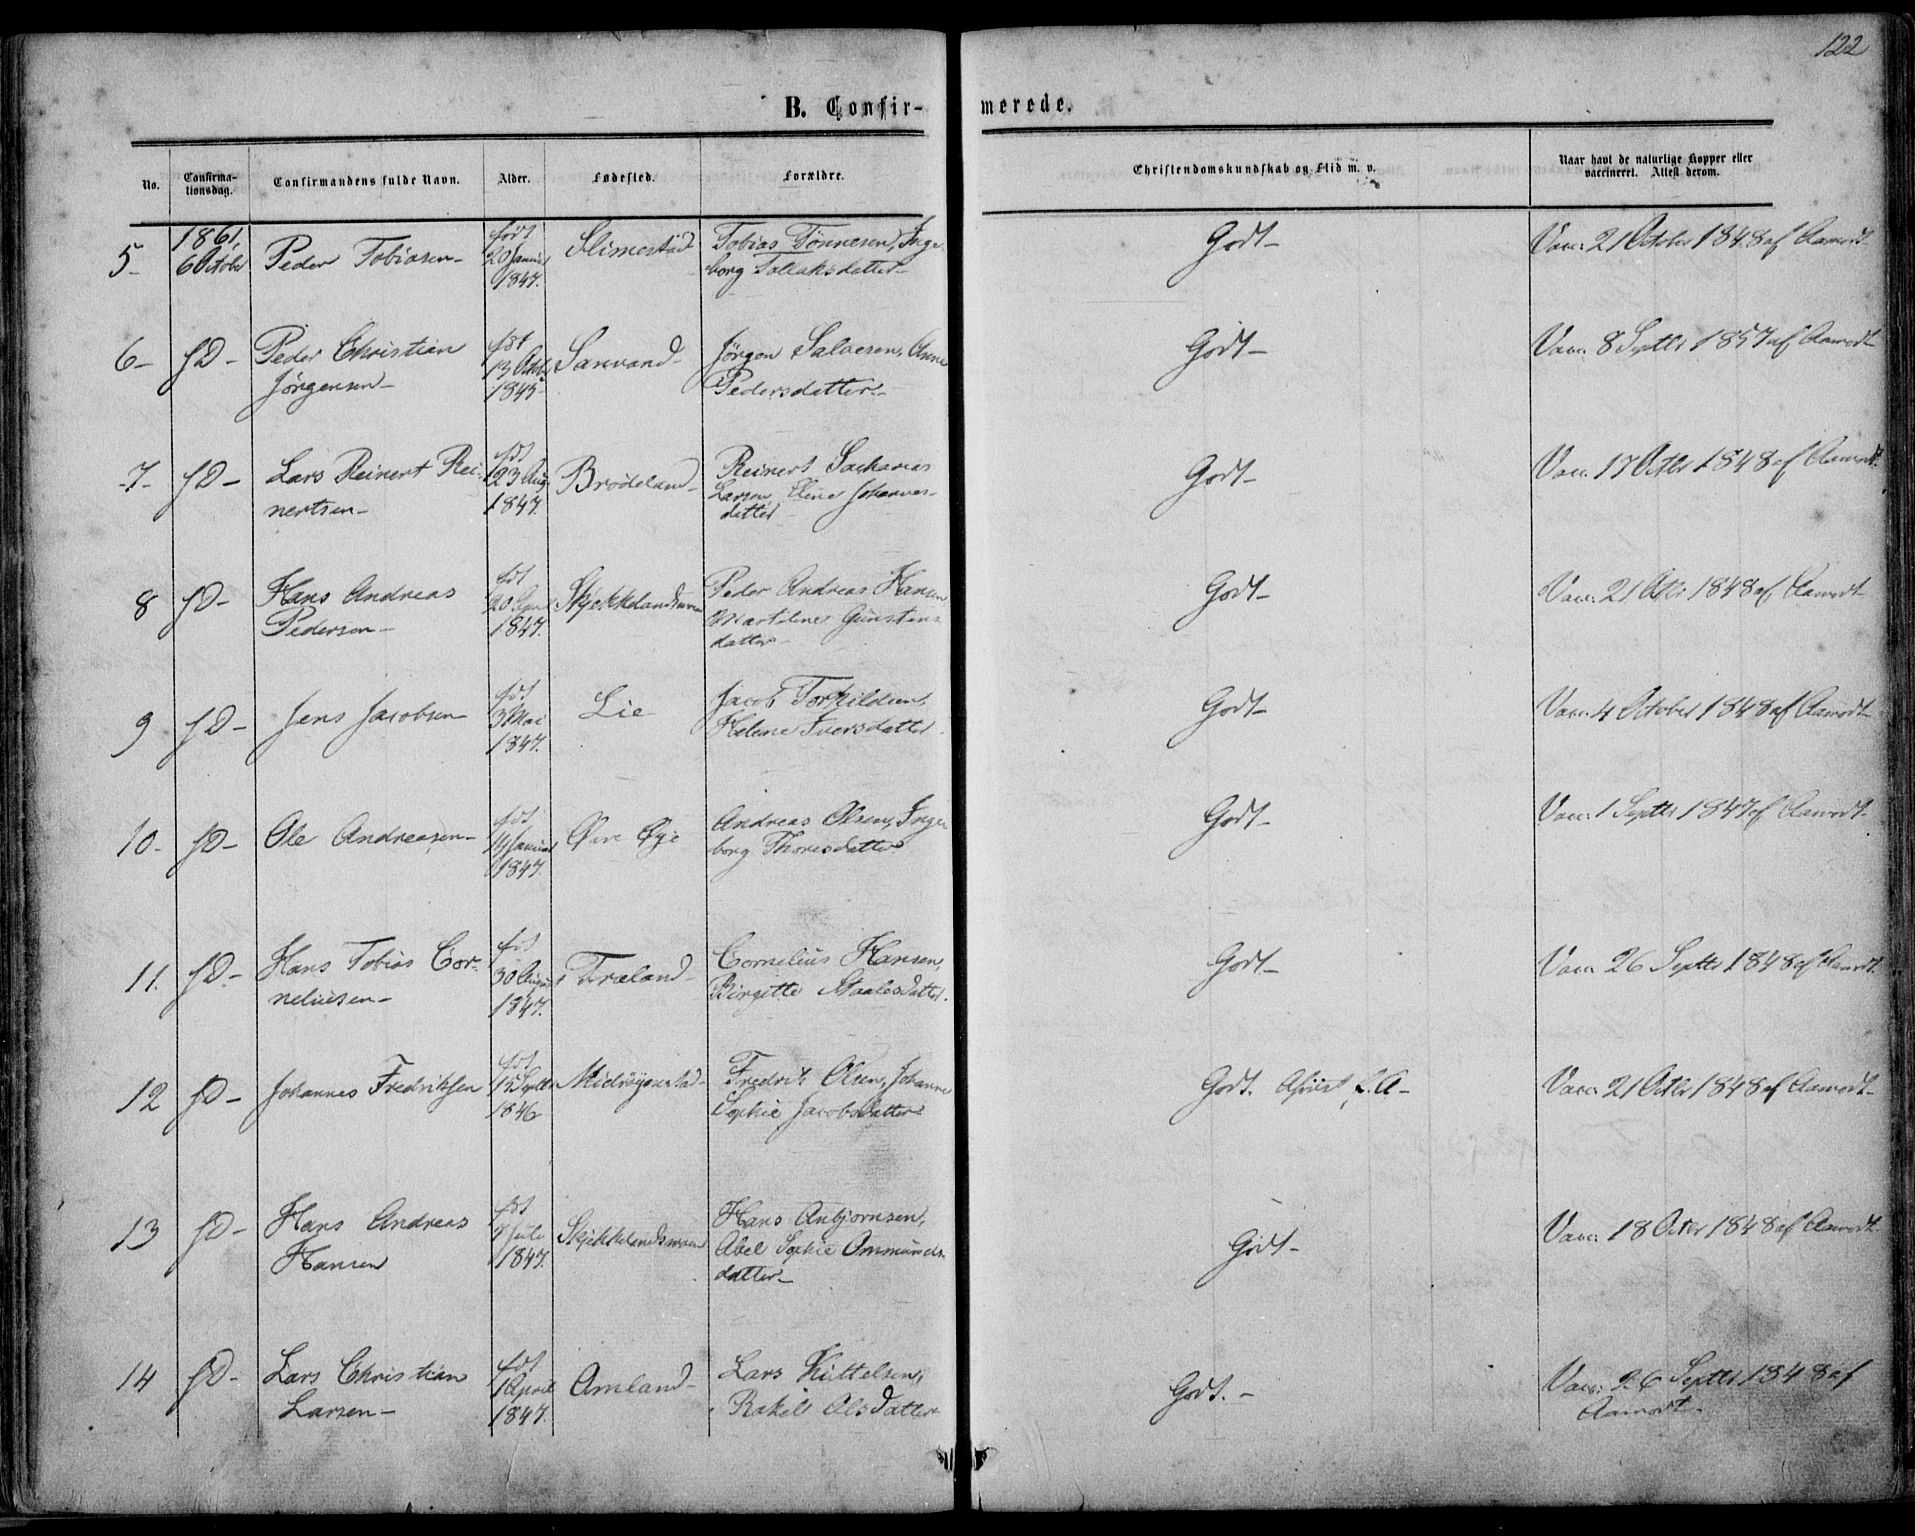 122
B. Confirmerede.
No. Confirmationsdag. Confirmandens fulde Navn. Alder. Fødested. Forældre. Christendomskundskab og Flid m. v. Naar havt de naturlige Kopper eller vaccineret. Attest derom.
1861,
5- 6 October Peder Tobiasen- født 20 Januar 1847. Slimestad Tobias Tønnesen, Inge-
borg Tollaksdatter- Godt- Vacc. 21 October 1848 af Aamodt-
6- fD- Peder Christian
Jørgensen- født 13 Octbr 1845- Sanvand- Jørgen Salvesen, Anne
Pedersdatter- Godt- Vacc. 8 Septbr 1857 af Aamodt-
7- fD- Lars Reinert Rei-
nertsen- født 23 Aug 1847. Brødeland- Reinert Sacharias
Larsen, Eline Johannes-
datter- Godt- Vacc. 17 Octbr 1848 af Aamodt.
8 fD- Hans Andreas
Pedersen- født 20 April 1847. Peder Andreas Hansen
Martiline Gunstens-
datter- Godt- Vacc. 21 Octbr 1848 af Aamodt-
9 fD- Jens Jacobsen- født 3 Mai 1847. Lie- Jacob Torkildsen,
Helene Iversdatter. Godt- Vacc. 4 October 1848 af Aamodt-
10- fD- Ole Andreasen- født 14 Januar 1847. Øvre Øye Andreas Olsen, Inge-
borg Thoresdatter Godt- Vacc. 1 Septbr 1847 af Aamodt-
11. fD- Hans Tobias Cor-
neliusen- født 30 August 1847. Træland- Cornelius Hansen,
Birgitte Staalesdatter. Godt- Vacc. 26 Septbr 1848 af Aamodt.
12 fD- Johannes Fredriksen født Septbr 1846 Fredrik Olsen, Johanne
Sophie Jacobsdatter Godt. Vacc. 21 Octbr 1848 af Aamodt-
13 fD- Hans Andreas
Hansen født 9 Juli 1847. Hans Anbjørnsen,
Abel Sophie Ommunds-
datter- Godt- Vacc. 18 Octbr 1848 af Aamodt.
14 fD- Lars Christian
Larsen- født 1 April 1847. Amland- Lars Kittelsen,
Rakel Olsdatter Godt.- Vacc. 26 Septbr 1848 af
Aamodt.